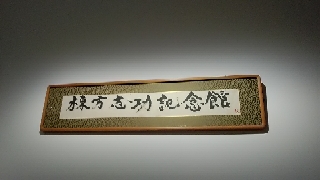 棟方志功記念館